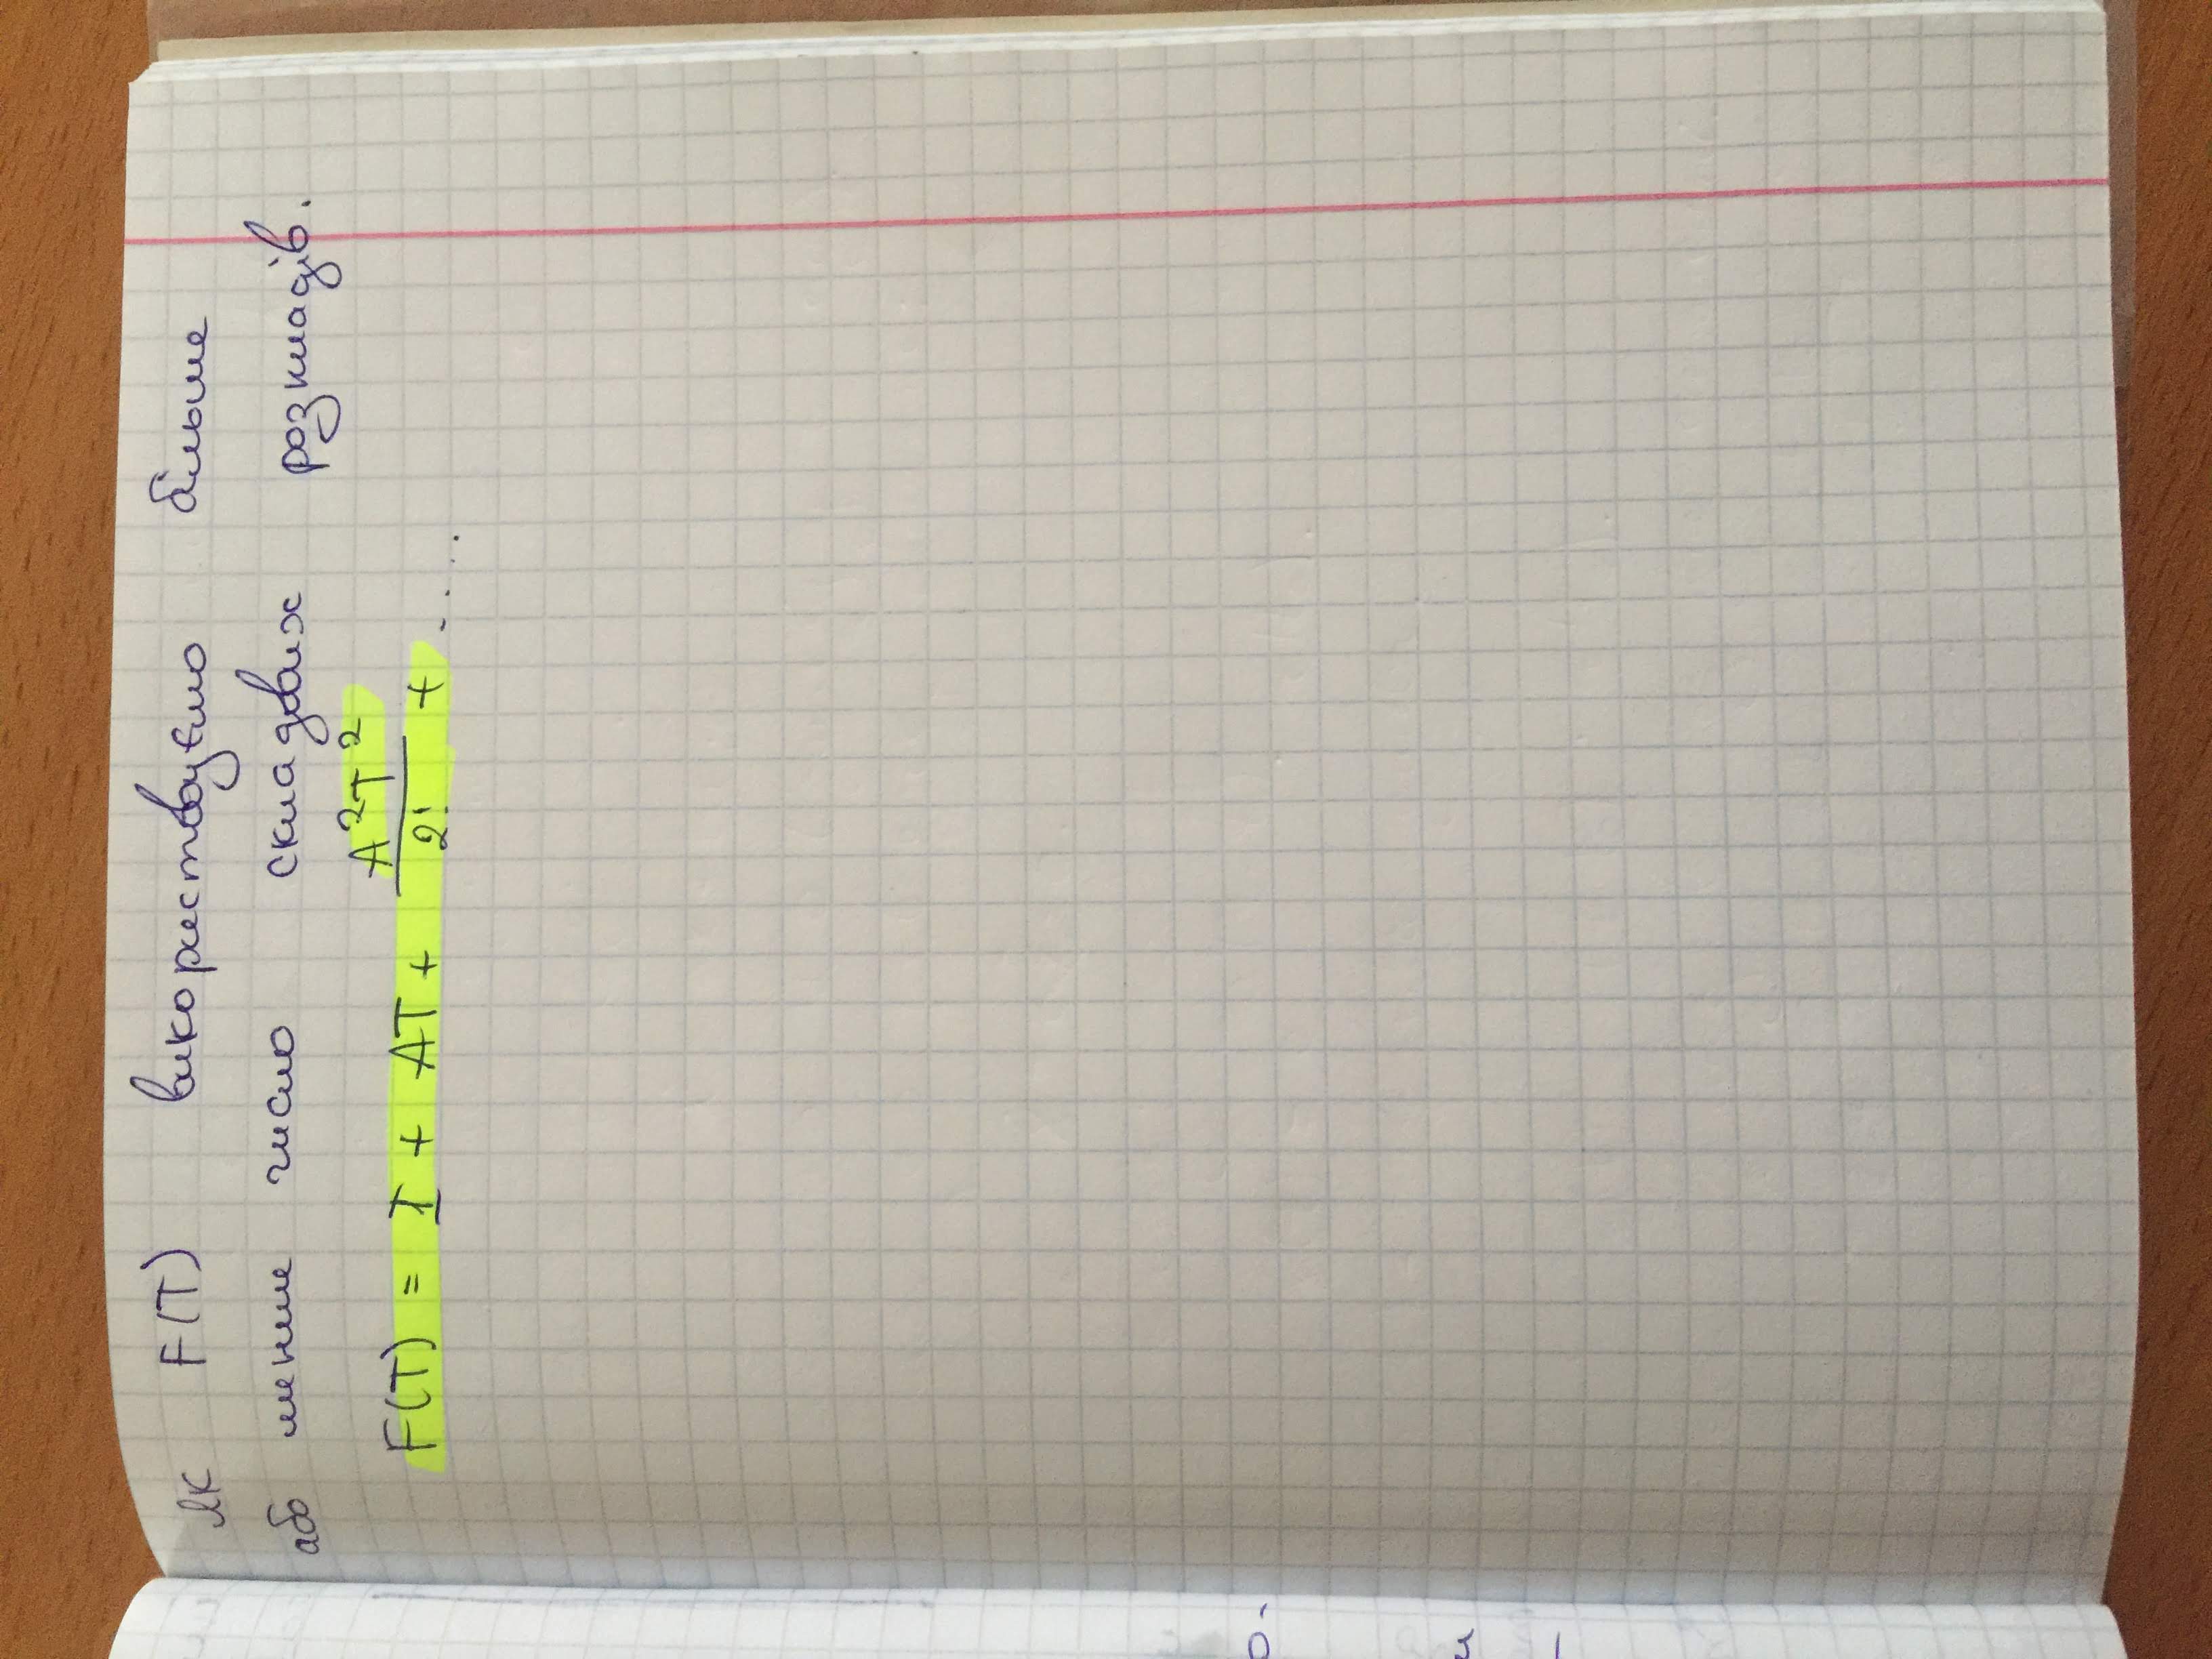 як F(T) використовуємо більше
або менше число складових розкладів.
F(T) = I + AT + A²T²/2! + .....